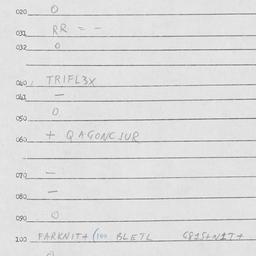 020 O
031 RR = -
032 O
040 TRIFL3X
041 —
O
050
+ QAGONCIUR
060
—
070
—
080
O
090
100 FARKNIT+ (100 BLETL G815+N17+